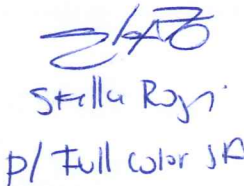 Stella Rogni
p/ Full color SA